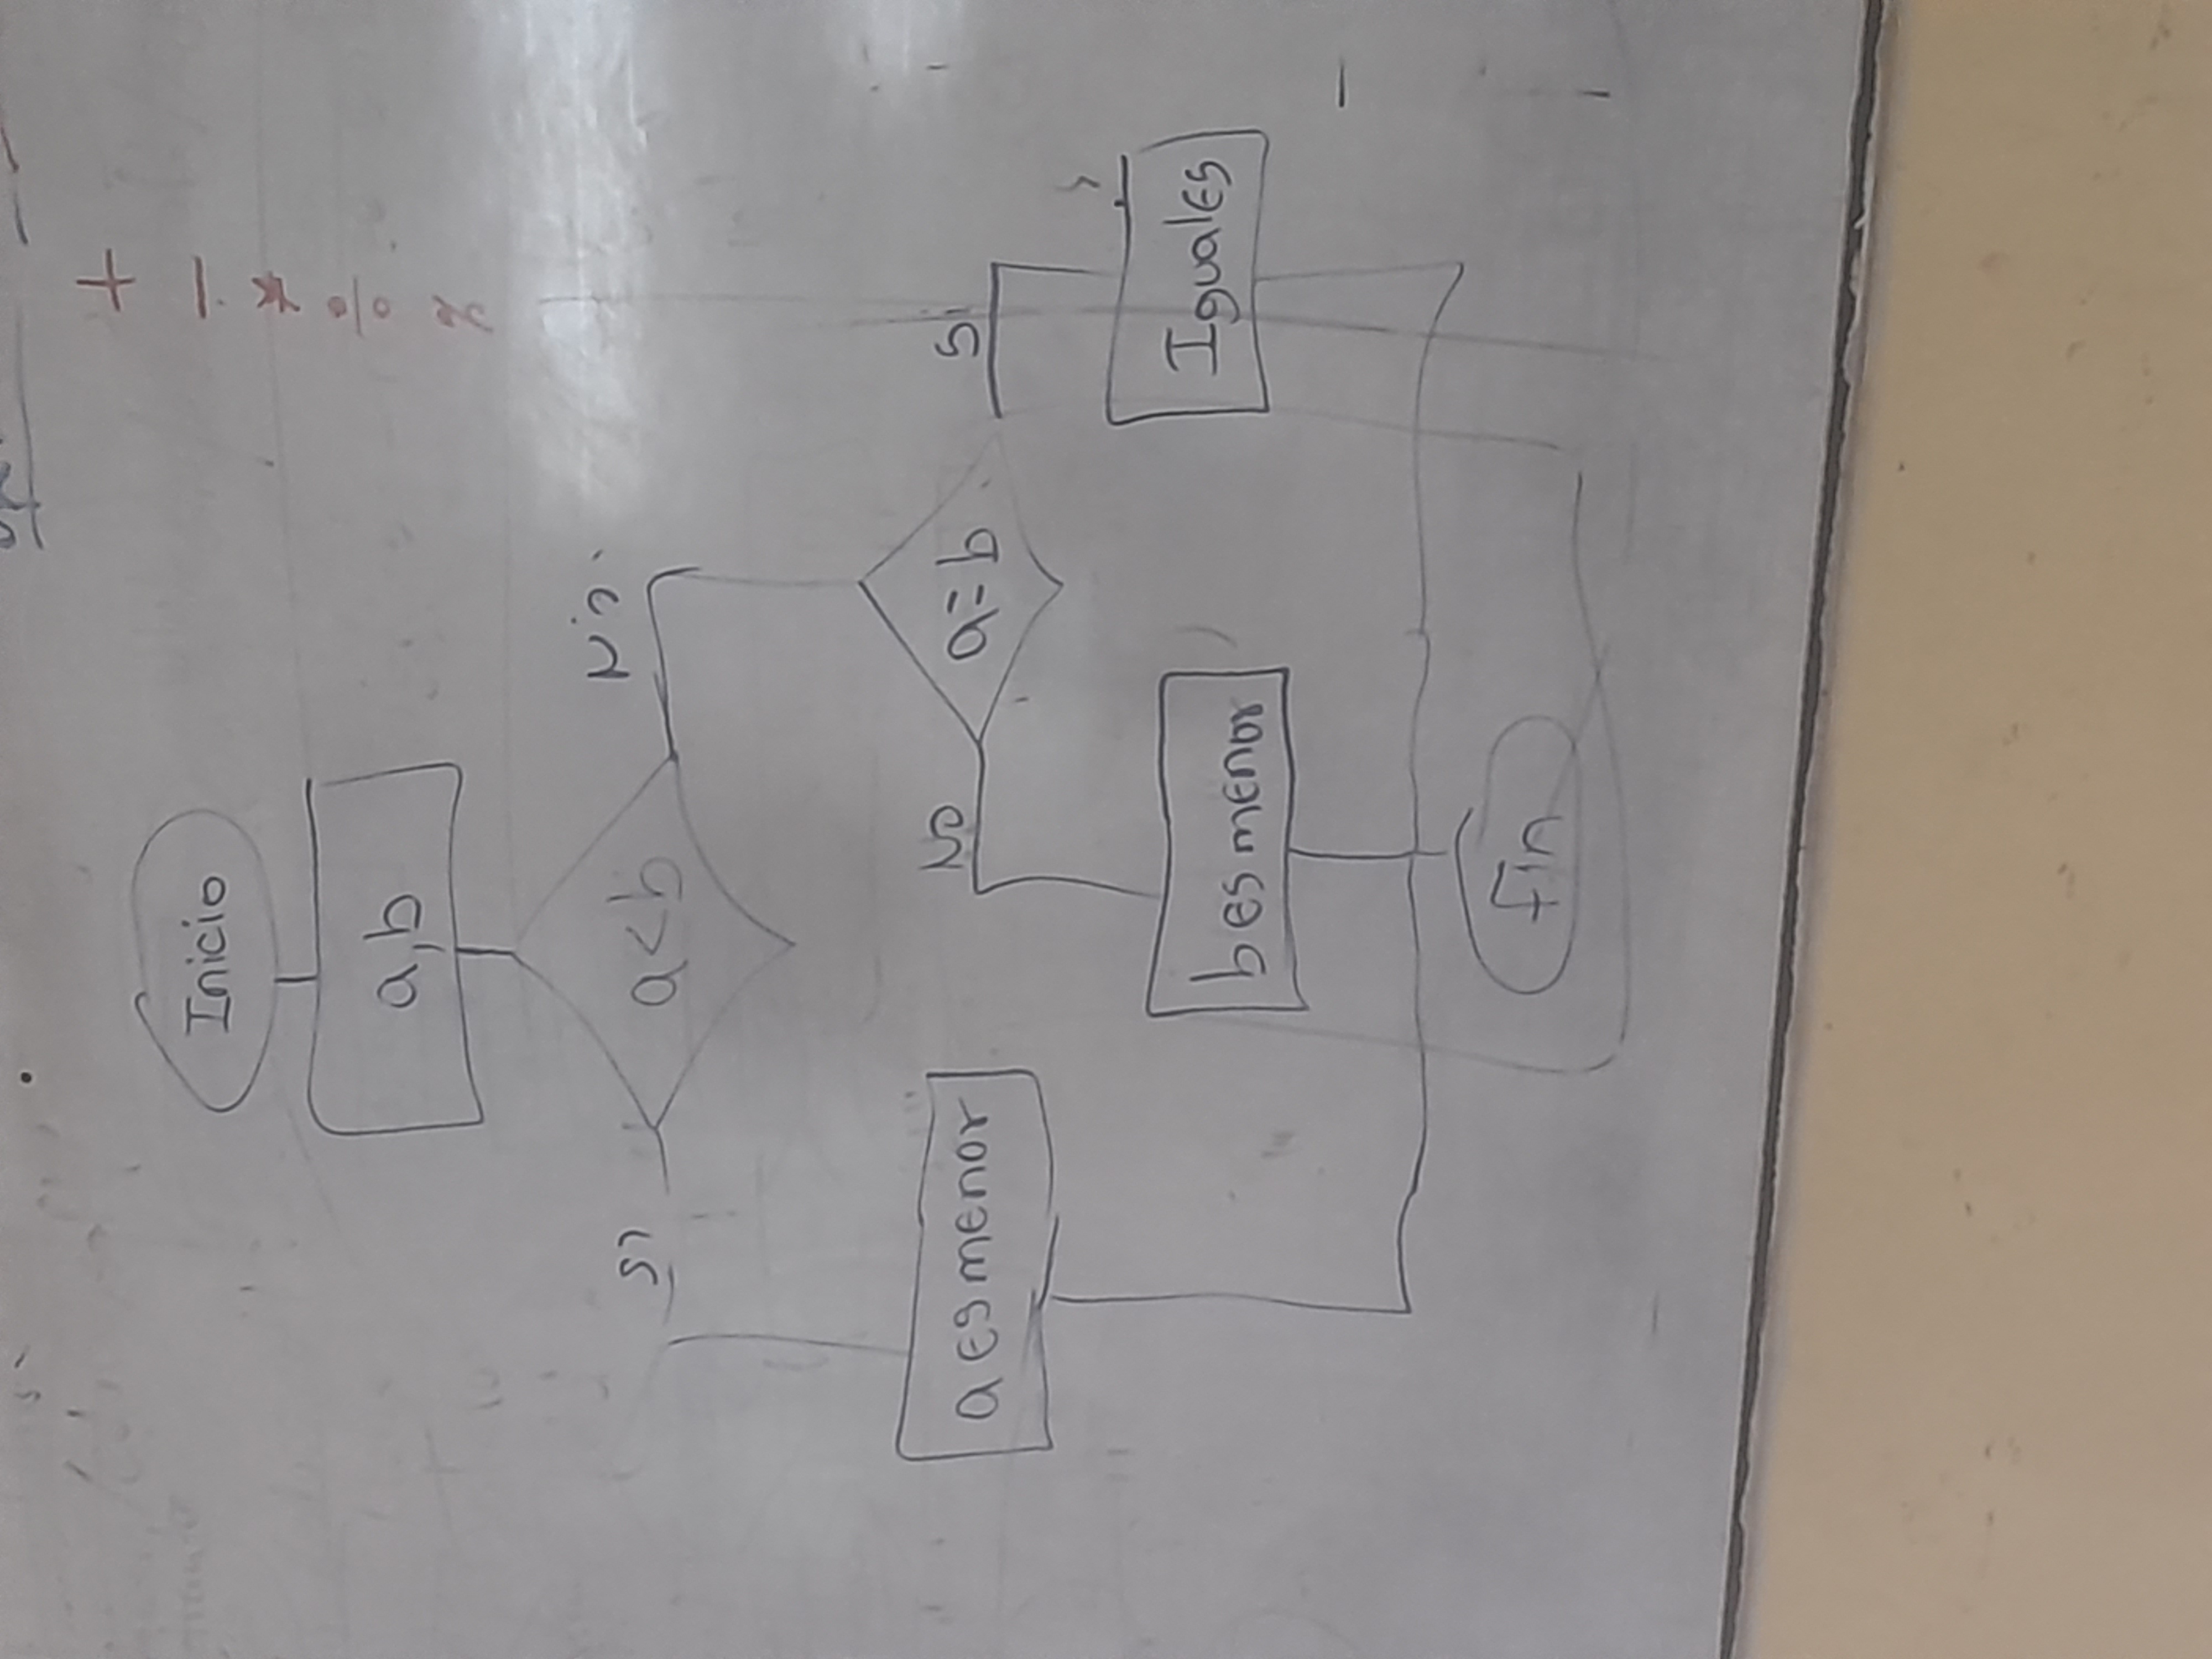 +
-
*
Inicio
÷
a,b
%
Si
a<b
No
a es menor
No
a=b
Si
b es menor
Iguales
fin